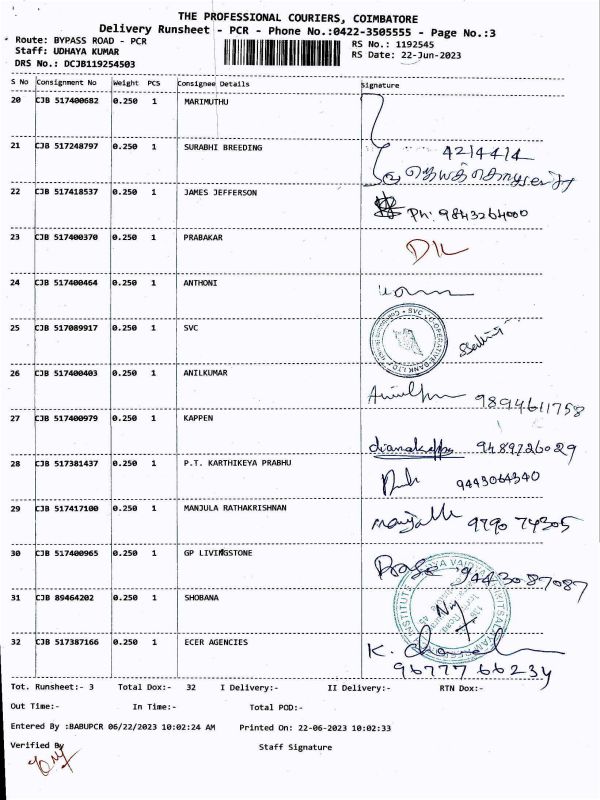 THE PROFESSIONAL COURIERS, COIMBATORE
Delivery Runsheet - PCR - Phone No.:0422-3505555 - Page No.:3
Route: BYPASS ROAD - PCR
RS No.: 1192545
Staff: UDHAYA KUMAR
RS Date: 22-Jun-2023
DRS No.: DCJB119254503
S No Consignment No Weight PCS Consignee Details Signature
20 CJB 517400682 0.250 1 MARIMUTHU
21 CJB 517248797 0.250 1 SURABHI BREEDING
4214414
22 CJB 517418537 0.250 1 JAMES JEFFERSON
Ph: 9843264000
23 CJB 517400370 0.250 1 PRABAKAR
24 CJB 517400464 0.250 1 ANTHONI
25 CJB 517089917 0.250 1 SVC
26 CJB 517400403 0.250 1 ANILKUMAR
9894611758
27 CJB 517400979 0.250 1 KAPPEN
9489726029
28 CJB 517381437 0.250 1 P.T. KARTHIKEYA PRABHU
9443064340
29 CJB 517417100 0.250 1 MANJULA RATHAKRISHNAN
9790 74305
30 CJB 517400965 0.250 1 GP LIVINGSTONE
9443087087
31 CJB 89464202 0.250 1 SHOBANA
32 CJB 517387166 0.250 1 ECER AGENCIES
K.
96777 66234
Tot. Runsheet:- 3 Total Dox:- 32 I Delivery:- II Delivery:- RTN Dox:-
Out Time:- In Time:- Total POD:-
Entered By :BABUPCR 06/22/2023 10:02:24 AM Printed On: 22-06-2023 10:02:33
Verified By Staff Signature